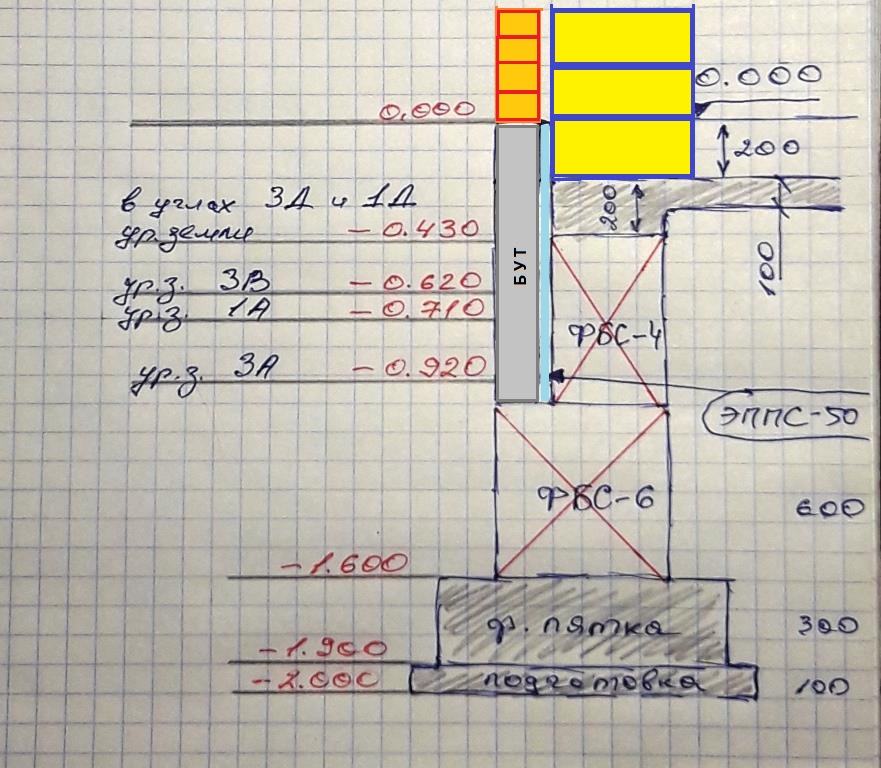 0.000
0.000
200
в углах 3Д и 1Д
ур. земли - 0.430
200
100
БУТ
ур.з. 3В - 0.620
ур.з. 1А - 0.710
ФБС-4
ур.з. 3А - 0.920
ЭППС-50
ФБС-6
600
- 1.600
ф. пятка
300
- 1.900
- 2.000
подготовка
100